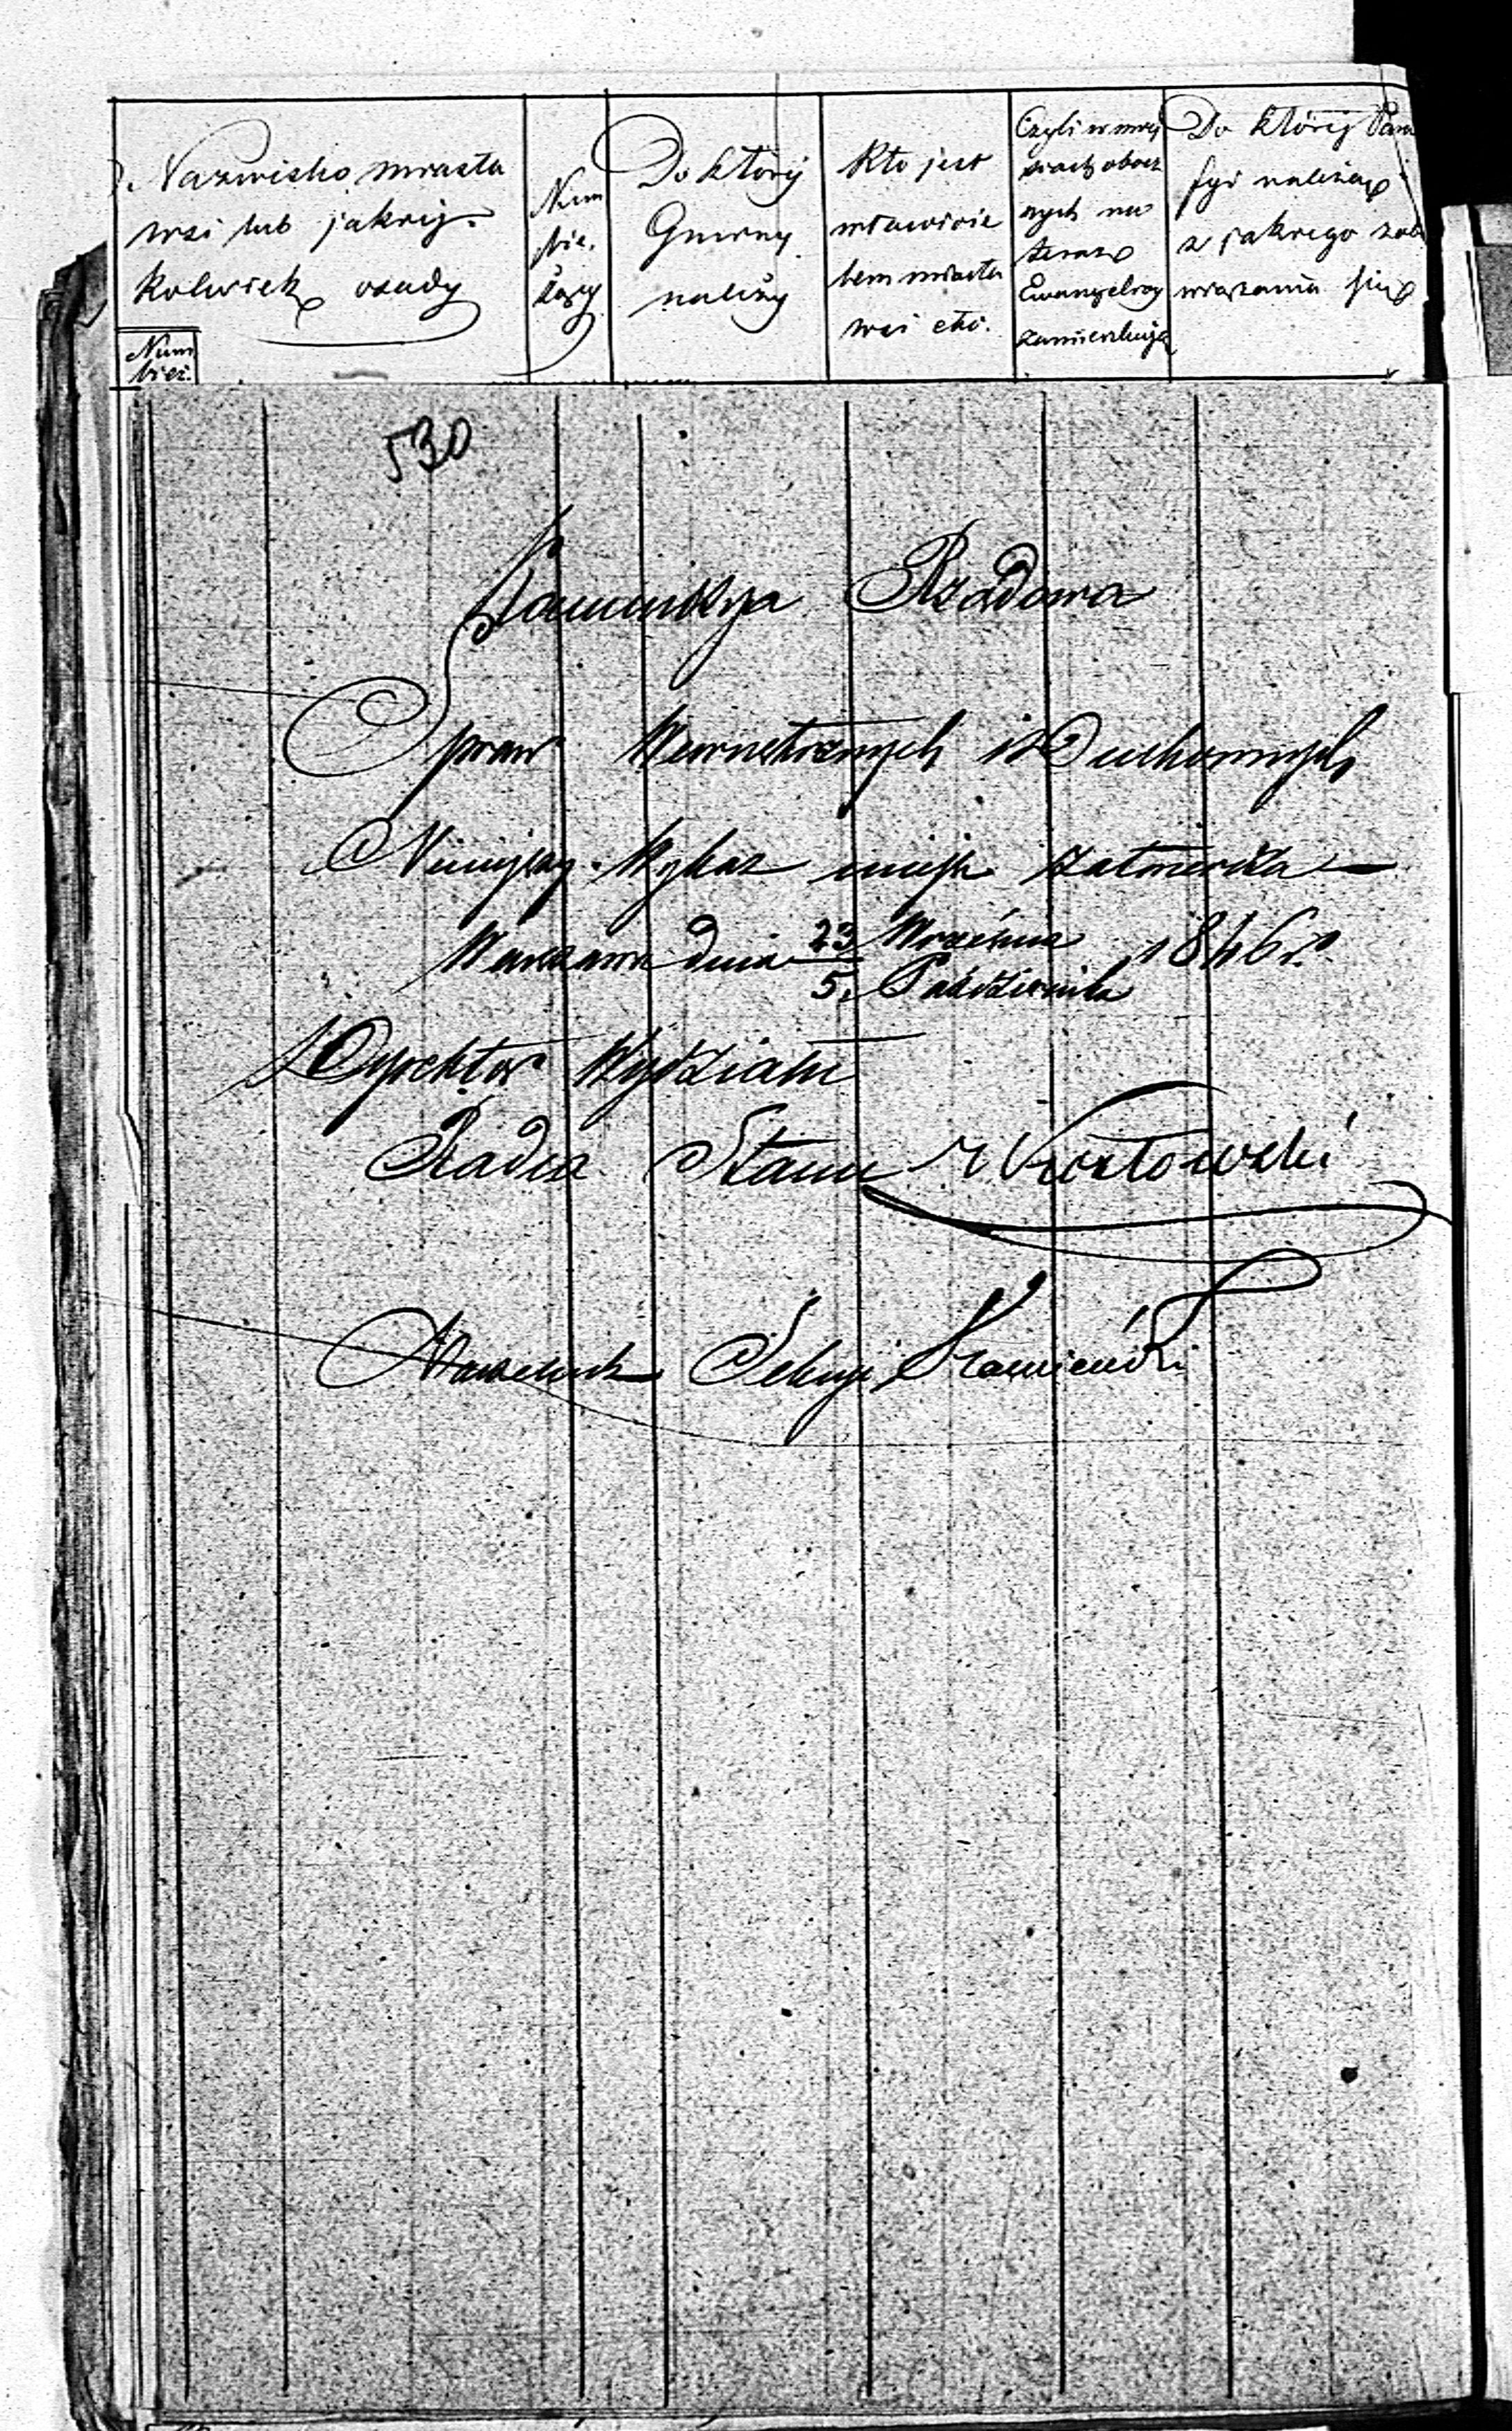 Nazwisko miasta
wsi lub jakiej-
kolwiek osady
Num
bież.
Num
bie.
żący
Do któréj
Gminy
należy
Kto jest
właścicie
lem miasta
wsi etc.
Czyli w miej
scach obocz
nych na
teraz
Ewangelicy
zamieszkują
Do któréj Para
fyi należą i
z jakiego zob
wiązania się
530
Kommissya Rządowa
Spraw Wewnętrznych i Duchownych
Niniejszy Wykaz miejsc zatwierdza
Warszawa dnia 23 Września 1846 r.
5. Października
Dyrektor Wydziału
Radca Stanu
Naczelnik Sekcyi Kamieński